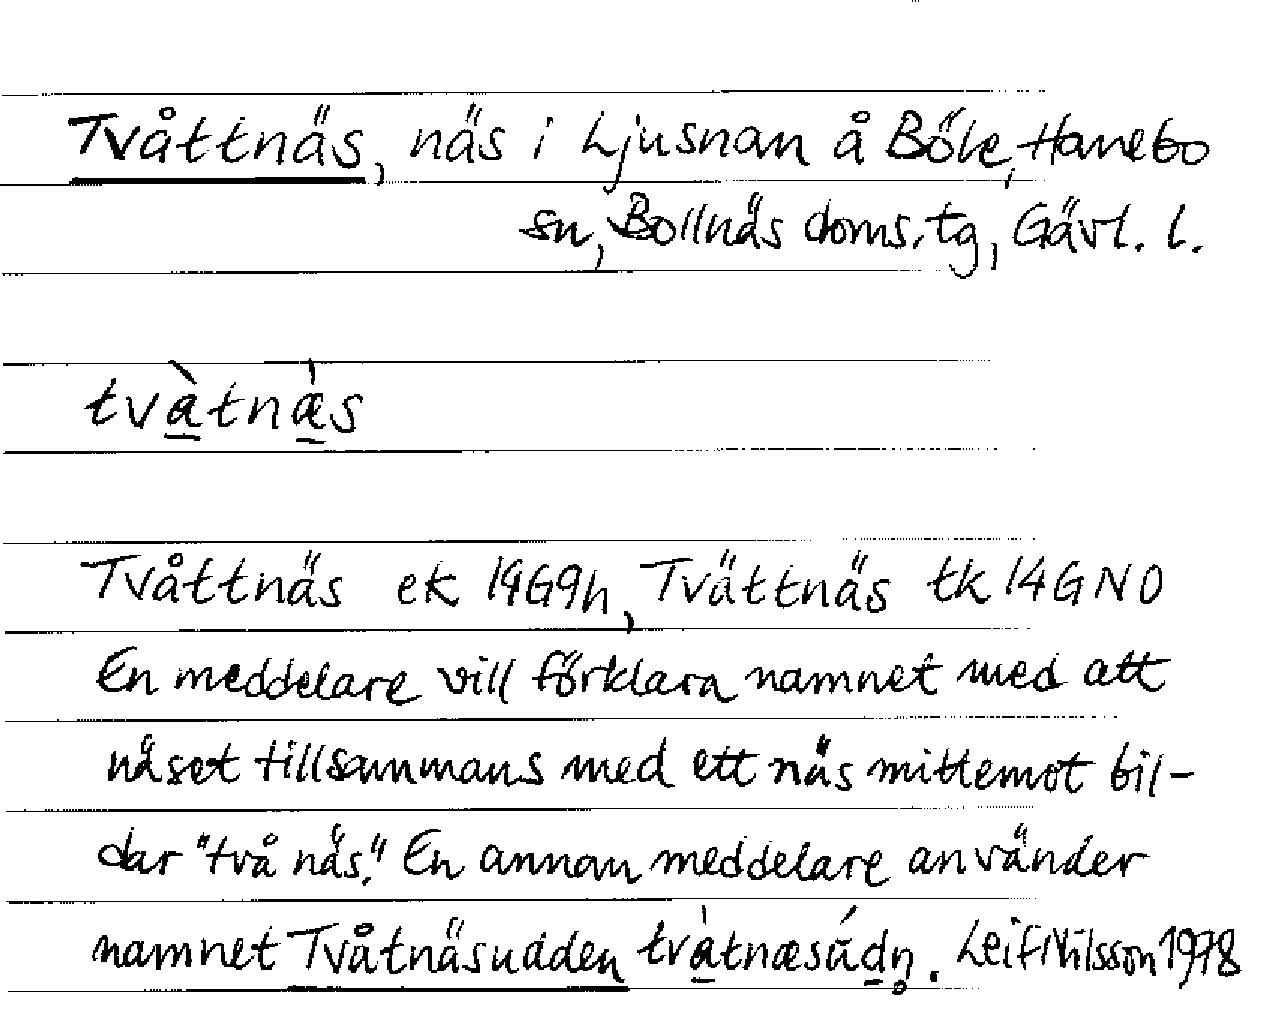 Tvåttnäs, näs i Ljusnan å Böle, Hanebo
sn, Bollnäs doms. tg, Gävl. l.
tvàtnæ̀s
Tvåttnäs ek 14G9h, Tvättnäs tk 14GNO
En meddelare vill förklara namnet med att
näset tillsammans med ett näs mittemot bil-
dar "två näs." En annan meddelare använder
namnet Tvåtnäsudden tvàtnæsúdn̥. Leif Nilsson 1978